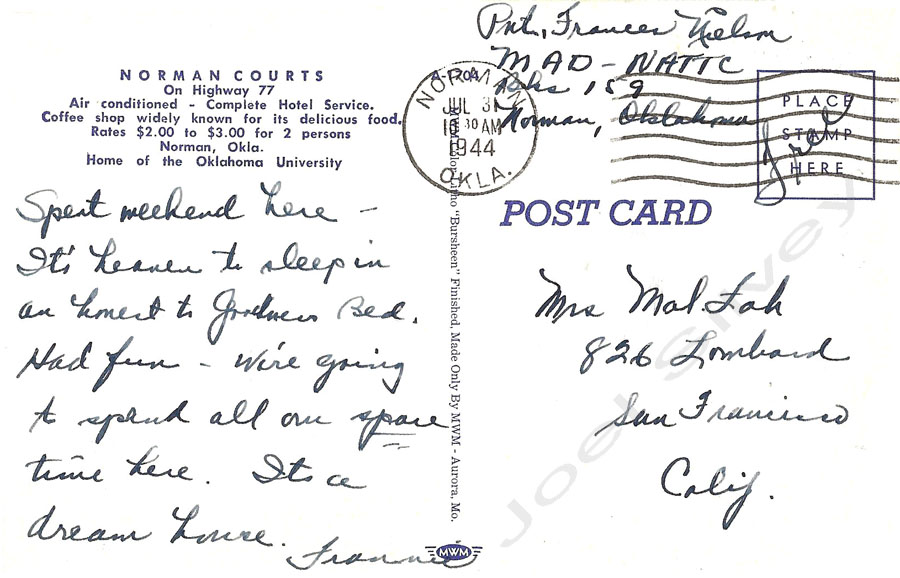 NORMAN COURTS
On Highway 77
Air conditioned - Complete Hotel Service.
Coffee shop widely known for its delicious food.
Rates $2.00 to $3.00 for 2 persons
Norman, Okla.
Home of the Oklahoma University
Spent weekend here -
It's heaven to sleep in
an honest to Goodness Bed.
Had fun - We're going
to spend all our spare
time here. It's a
dream house.
Frannie
A-1204
"Bursheen" Finished, Made Only By MWM - Aurora, Mo.
MWM
NORMAN
JUL 31
10 30 AM
1944
OKLA.
Pvt. Frances Nielson
MAD - NATTC
Bks 159
Norman, Oklahoma
PLACE
STAMP
HERE
free
POST CARD
Mrs Mal.
826 Lombard
San Francisco
Calif.
Joel Silvey